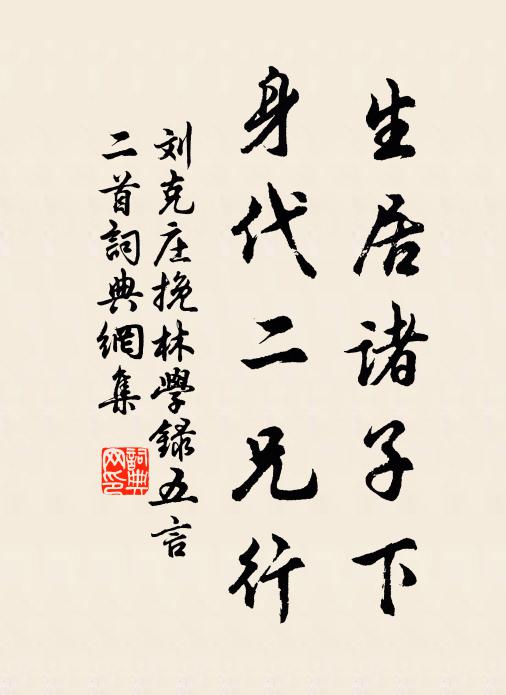 生居诸子下
身代二兄行
刘克庄挽林學録五言
二首詞典網集
詞典网印